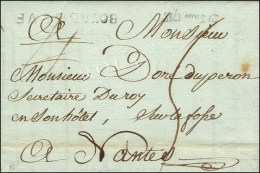 A Monsieur
Monsieur Doré duperon
Secretaire Du roy
en son hôtel, sur la fosse
A Nantes